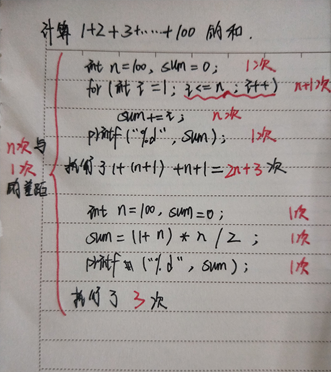 计算 1+2+3+……+100 的和.
int n=100, sum=0; 1次
for (int i=1; i<=n; i++) n+1次
sum+=i; n次
printf("%d", sum); 1次
执行了1+(n+1)+n+1=2n+3次
n次与
1次
的差距
int n=100, sum=0; 1次
sum=(1+n)*n/2; 1次
printf("%d", sum); 1次
执行了 3 次